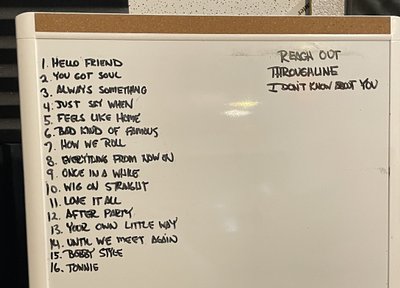 1. HELLO FRIEND
2. YOU GOT SOUL
3. ALWAYS SOMETHING
4. JUST SAY WHEN
5. FEELS LIKE HOME
6. BAD KIND OF FAMOUS
7. HOW WE ROLL
8. EVERYTHING FROM NOW ON
9. ONCE IN A WHILE
10. WIG ON STRAIGHT
11. LOVE IT ALL
12. AFTER PARTY
13. YOUR OWN LITTLE WAY
14. UNTIL WE MEET AGAIN
15. BOBBY STYLE
16. TONNIE
REACH OUT
THROUGHLINE
I DON'T KNOW ABOUT YOU